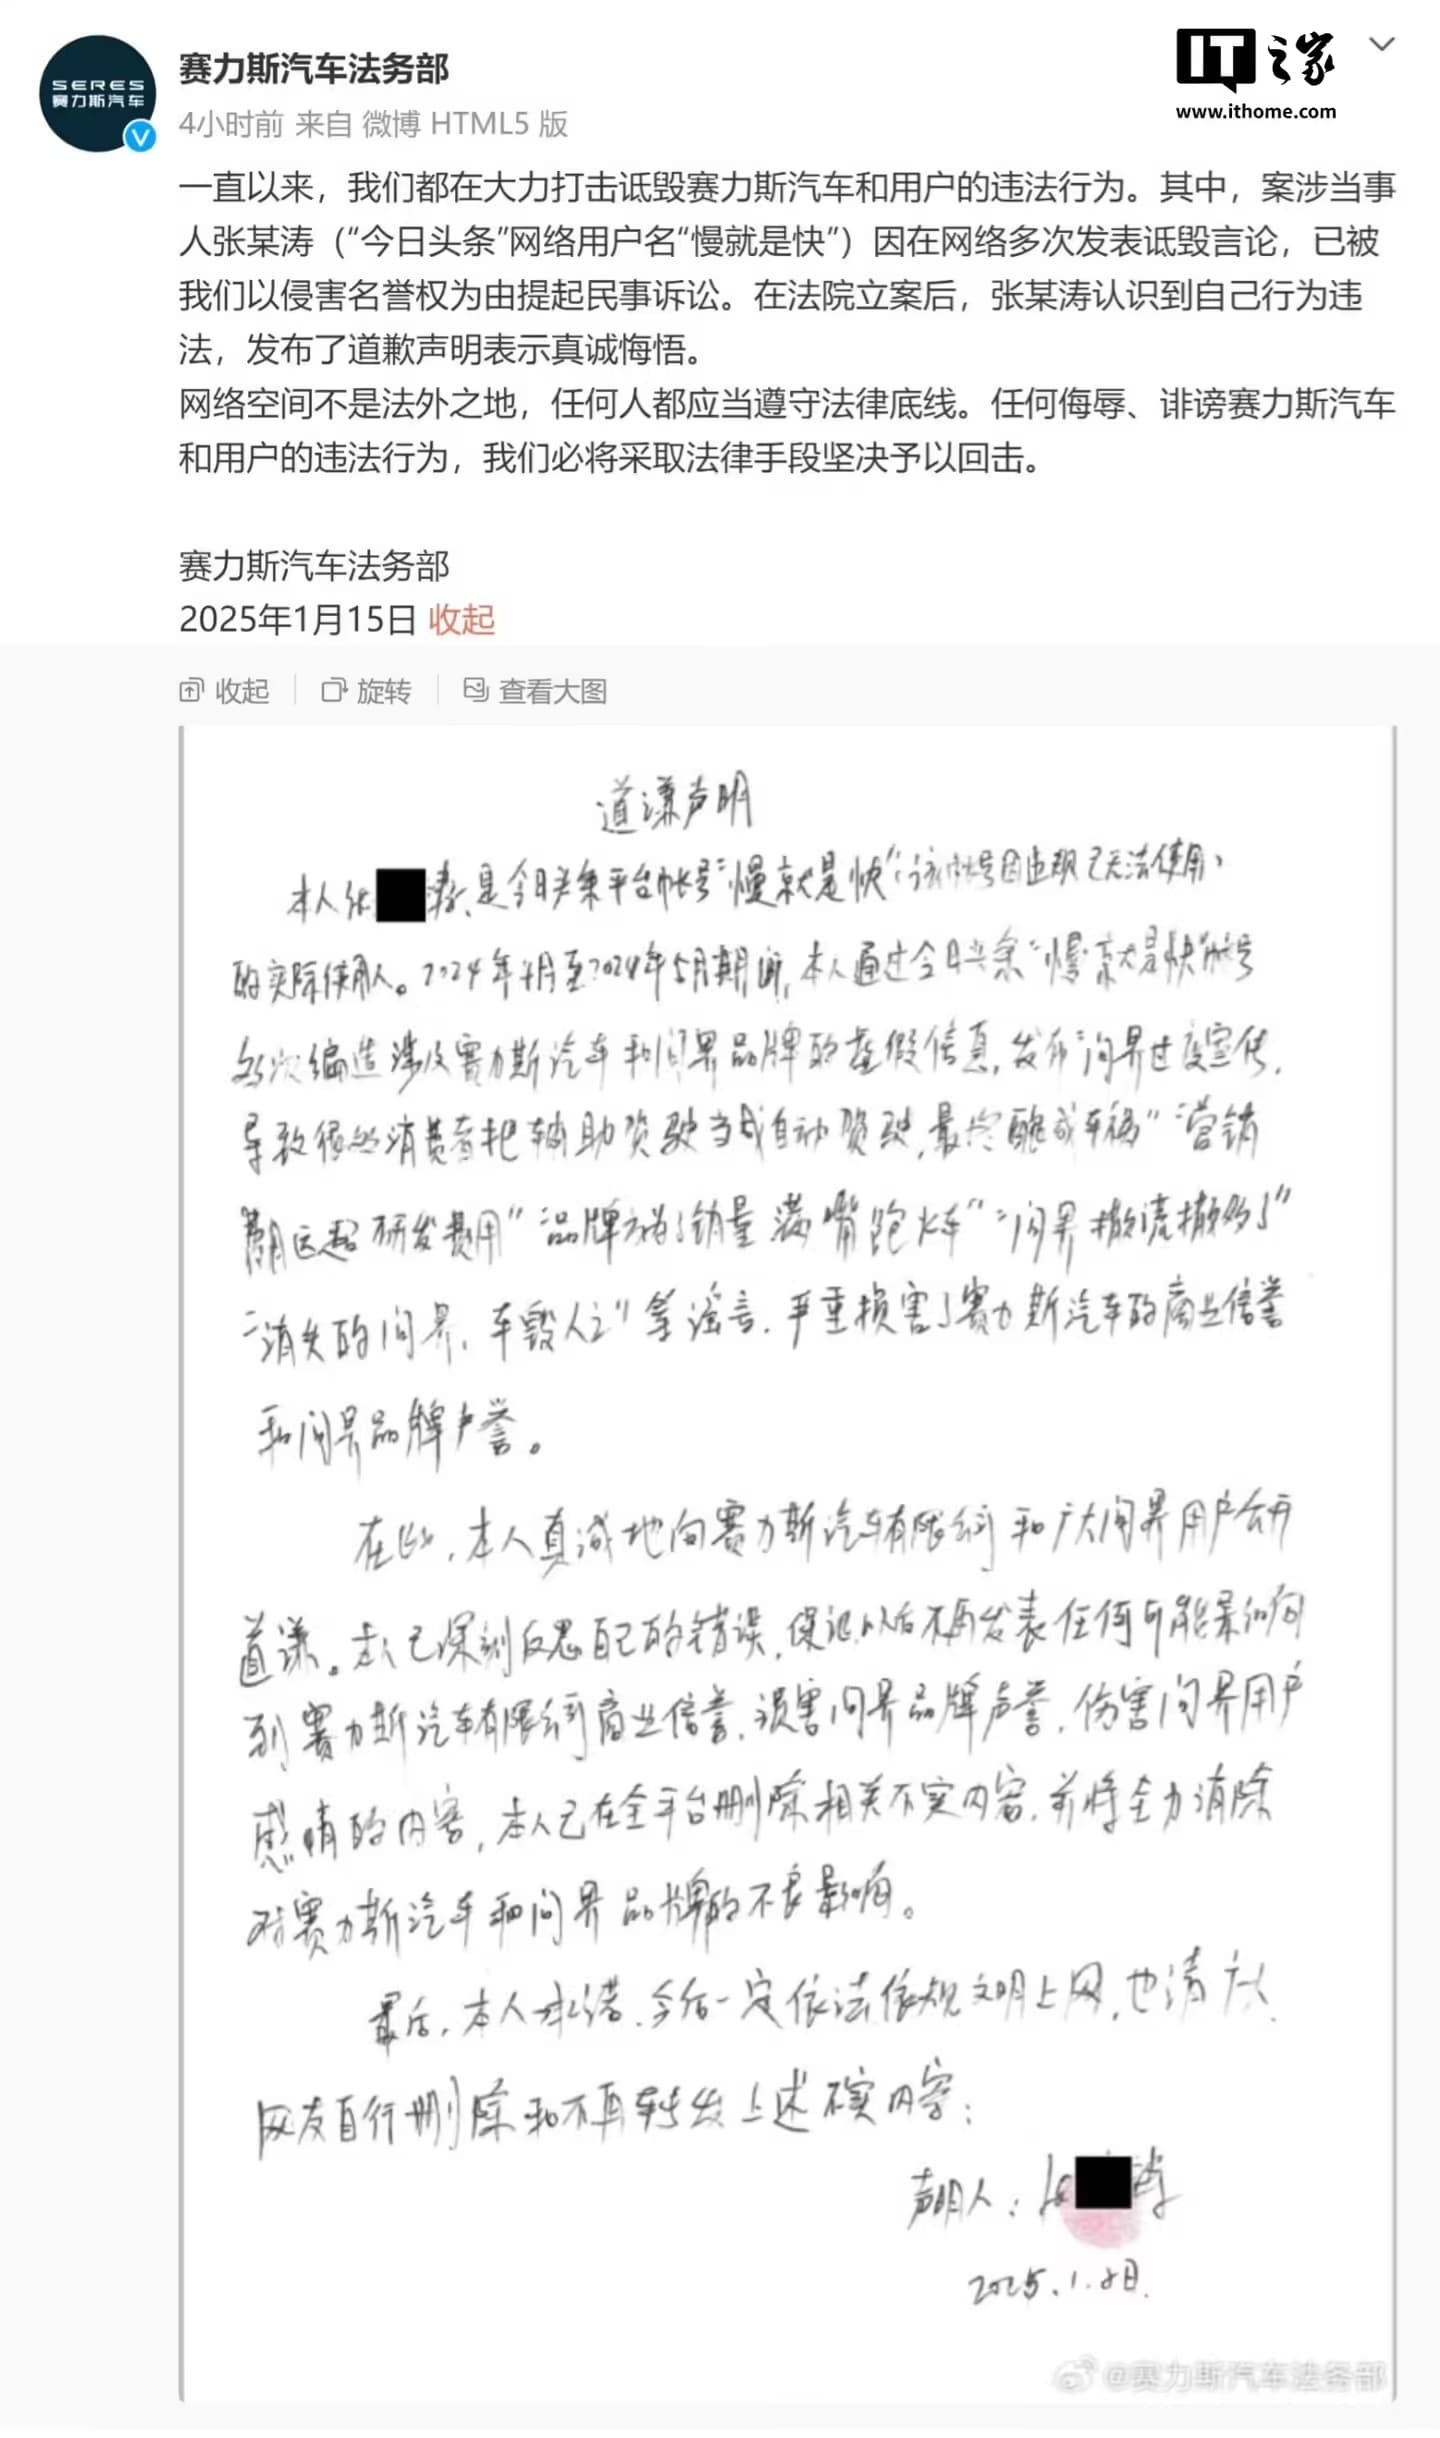 SERES
赛力斯汽车
赛力斯汽车法务部
IT之家
www.ithome.com
4小时前 来自 微博 HTML5 版
一直以来，我们都在大力打击诋毁赛力斯汽车和用户的违法行为。其中，案涉当事
人张某涛（“今日头条”网络用户名“慢就是快”）因在网络多次发表诋毁言论，已被
我们以侵害名誉权为由提起民事诉讼。在法院立案后，张某涛认识到自己行为违
法，发布了道歉声明表示真诚悔悟。
网络空间不是法外之地，任何人都应当遵守法律底线。任何侮辱、诽谤赛力斯汽车
和用户的违法行为，我们必将采取法律手段坚决予以回击。
赛力斯汽车法务部
2025年1月15日 收起
收起 旋转 查看大图
道谦声明
本人张 涛，是今日头条平台帐号“慢就是快”（该帐号因违规已无法使用）
的实际使用人。2024年4月至2024年5月期间，本人通过今日头条“慢就是快”帐号
多次编造涉及赛力斯汽车和问界品牌的虚假信息，发布“问界过度宣传，
导致很多消费者把辅助驾驶当成自动驾驶，最终酿成车祸”“营销
费用远超研发费用”“品牌方为了销量满嘴跑火车”“问界撒谎撒多了”
“消失的问界，车毁人亡”等谣言，严重损害了赛力斯汽车的商业信誉
和问界品牌声誉。
在此，本人真诚地向赛力斯汽车有限公司和广大问界用户公开
道谦。本人已深刻反思自己的错误，保证以后不再发表任何可能影响
到赛力斯汽车有限公司商业信誉，损害问界品牌声誉，伤害问界用户
感情的内容，本人已在全平台删除相关不实内容，并将全力消除
对赛力斯汽车和问界品牌的不良影响。
最后，本人承诺，今后一定依法依规文明上网，也请广大
网友自行删除和不再转发上述不实内容；
声明人：张 涛
2025.1.8日.
@赛力斯汽车法务部